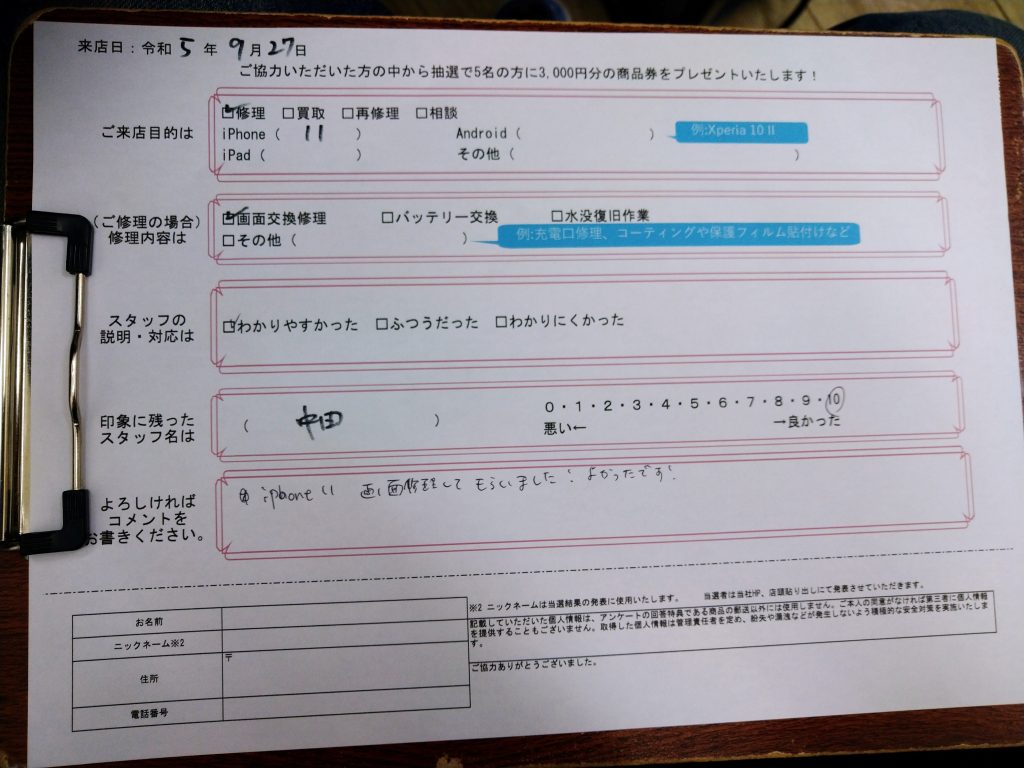 来店日：令和 5 年 9 月 27 日
ご協力いただいた方の中から抽選で5名の方に3,000円分の商品券をプレゼントいたします！
ご来店目的は
☑修理 □買取 □再修理 □相談
iPhone（ 11 ） Android（ ） 例:Xperia 10 II
iPad（ ） その他（ ）
（ご修理の場合）
修理内容は
☑画面交換修理 □バッテリー交換 □水没復旧作業
□その他（ ） 例:充電口修理、コーティングや保護フィルム貼付けなど
スタッフの
説明・対応は
☑わかりやすかった □ふつうだった □わかりにくかった
印象に残った
スタッフ名は
（ 中田 ）
0・1・2・3・4・5・6・7・8・9・10
悪い← →良かった
よろしければ
コメントを
お書きください。
iphone 11 画面修理して もらいました！よかったです！
お名前
ニックネーム※2
住所
〒
電話番号
※2 ニックネームは当選結果の発表に使用いたします。 当選者は当社HP、店頭貼り出しにて発表させていただきます。
記載していただいた個人情報は、アンケートの回答特典である商品の郵送以外には使用しません。ご本人の同意がなければ第三者に個人情報
を提供することもございません。取得した個人情報は管理責任者を定め、紛失や漏洩などが発生しないよう積極的な安全対策を実施いたしま
す。
ご協力ありがとうございました。